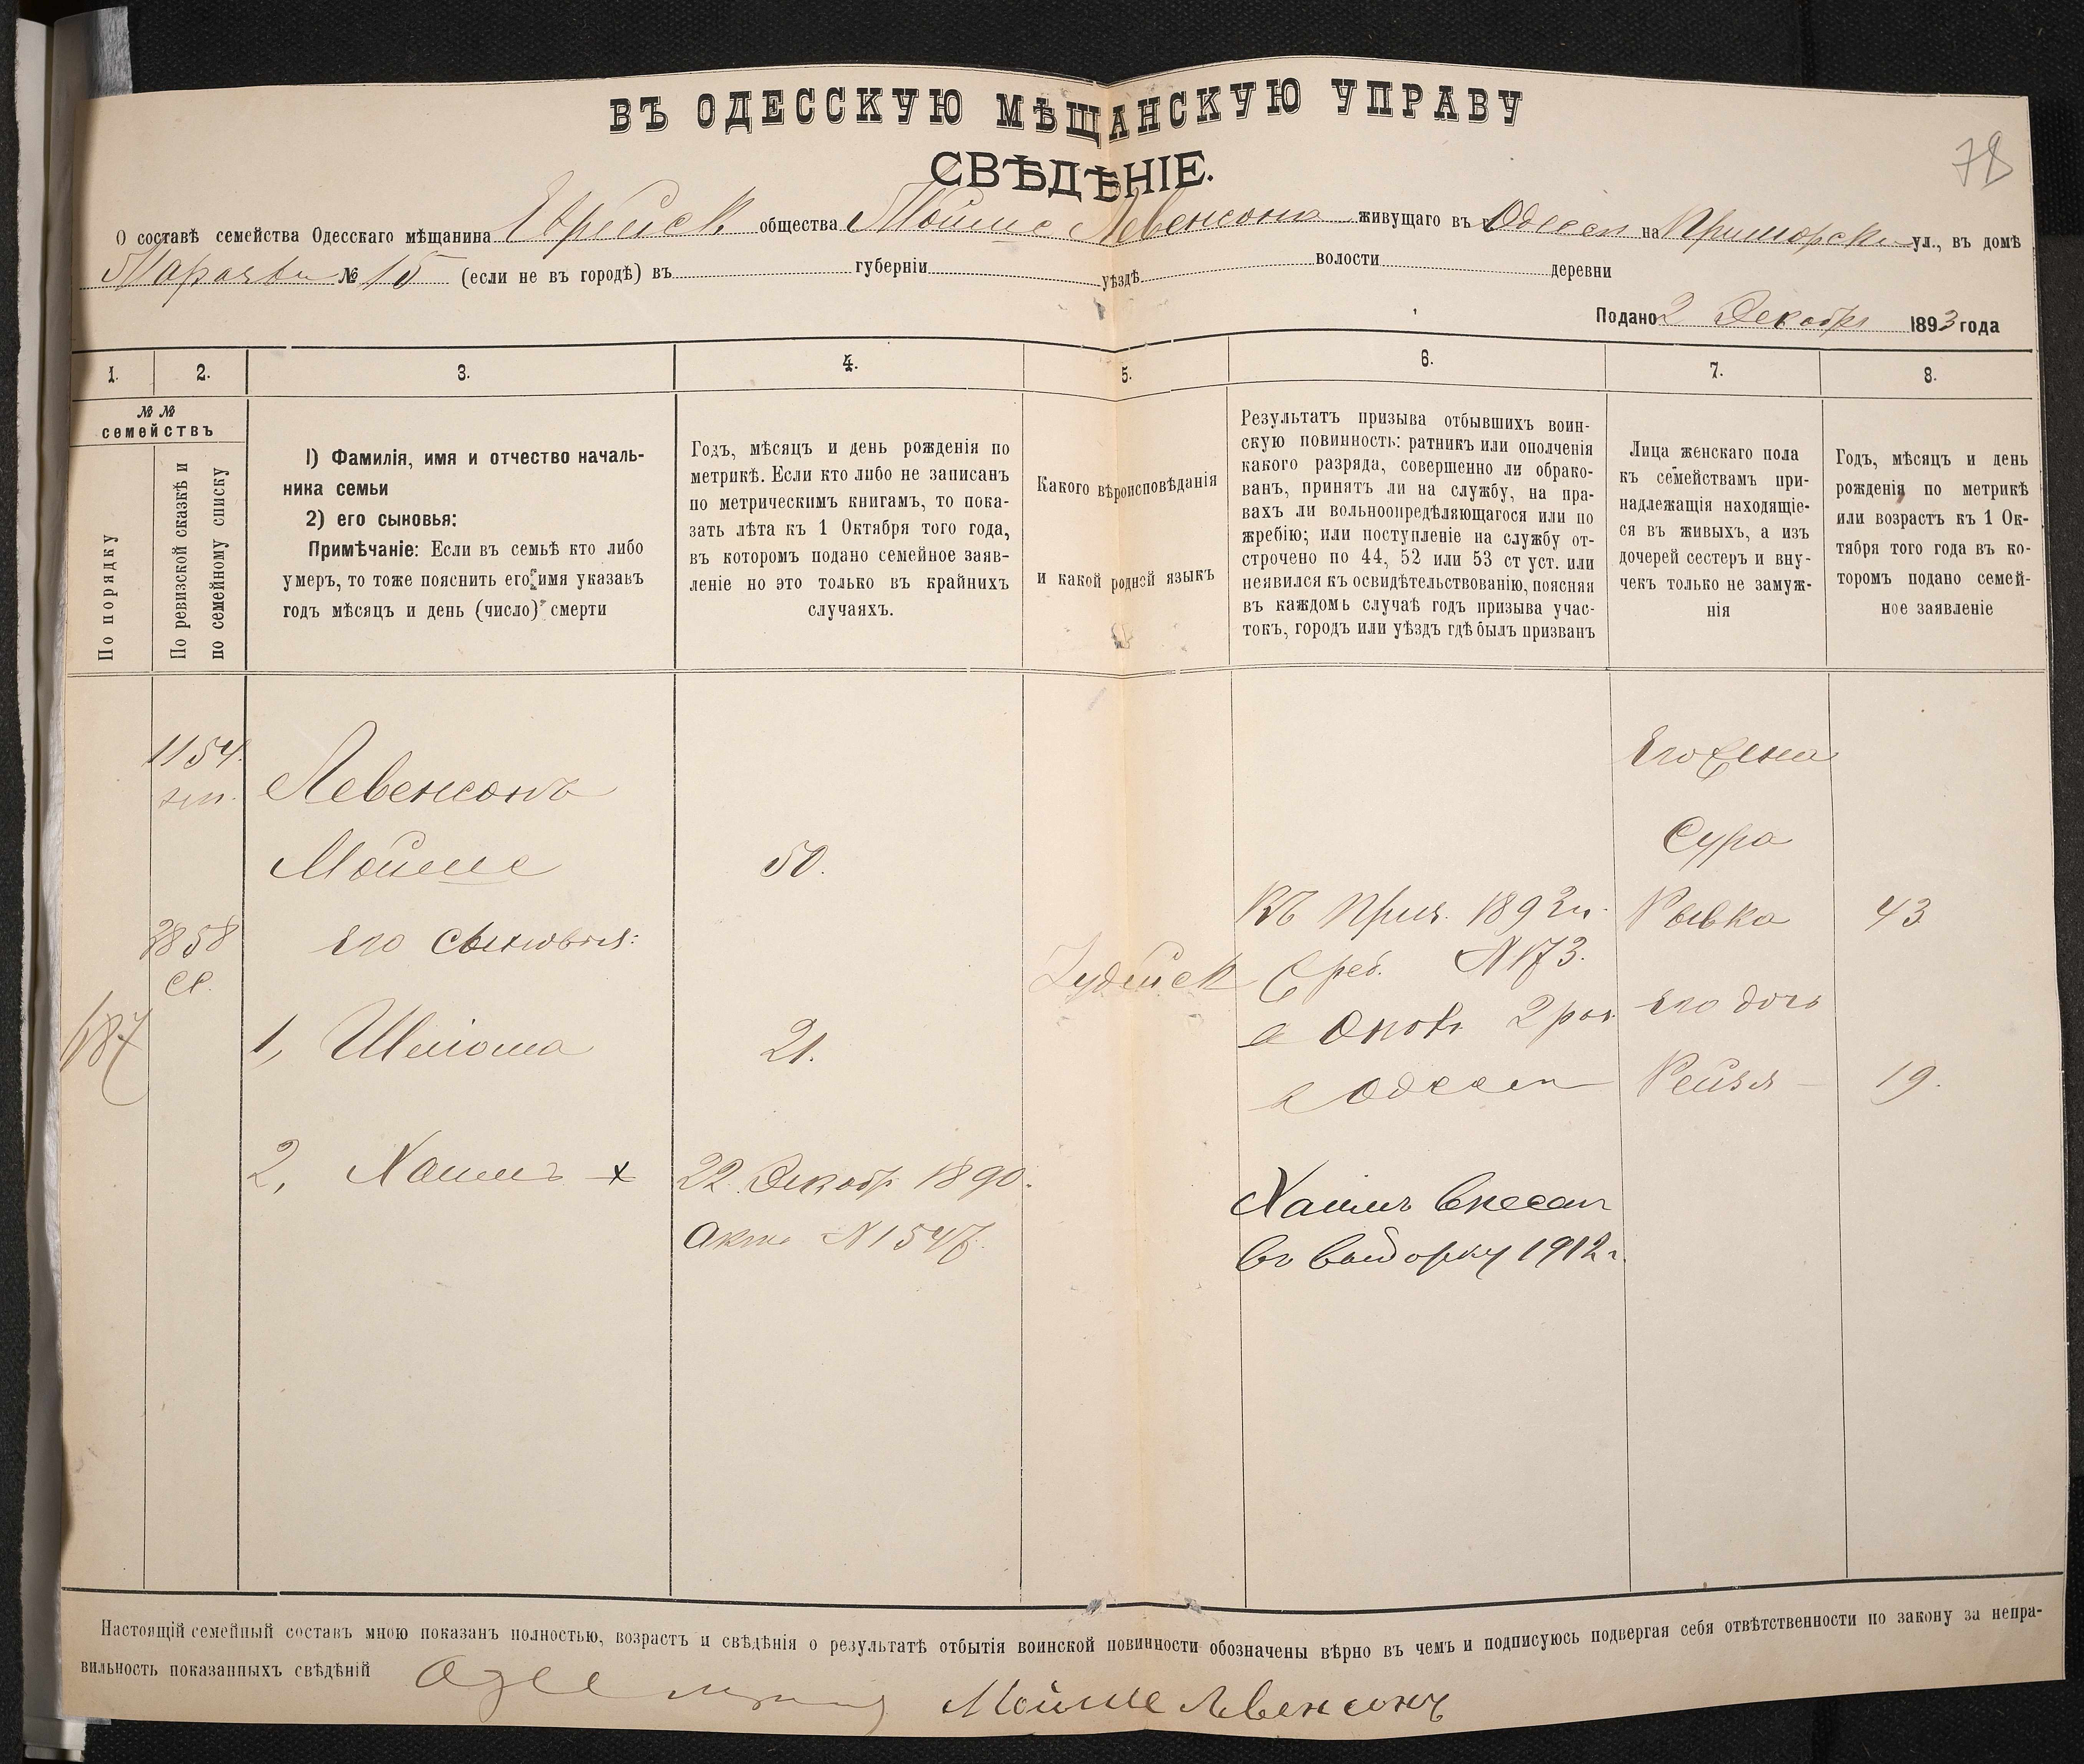 ВЪ ОДЕССКУЮ МѢЩАНСКУЮ УПРАВУ
78
СВѢДѢНІЕ.
О составѣ семейства Одесскаго мѣщанина Еврейск общества Мойше Левенсонъ живущаго въ г. Одессѣ на Приморской ул., въ домѣ
№ 15 (если не въ городѣ) въ губерніи уѣздѣ волости деревни
Подано 2 Декабр 1893 года
1. 2. 3. 4. 5. 6. 7. 8.
№№
семействъ
По порядку
По ревизской сказкѣ и
по семейному списку
1) Фамилія, имя и отчество началь-
ника семьи
2) его сыновья:
Примѣчаніе: Если въ семьѣ кто либо
умеръ, то тоже пояснить его имя указавъ
годъ мѣсяцъ и день (число) смерти
Годъ, мѣсяцъ и день рожденія по
метрикѣ. Если кто либо не записанъ
по метрическимъ книгамъ, то пока-
зать лѣта къ 1 Октября того года,
въ которомъ подано семейное заяв-
леніе но это только въ крайнихъ
случаяхъ.
Какого вѣроисповѣданія
и какой родной языкъ
Результатъ призыва отбывшихъ воин-
скую повинность: ратникъ или ополченія
какого разряда, совершенно ли обрако-
ванъ, принятъ ли на службу, на пра-
вахъ ли вольноопредѣляющагося или по
жребію; или поступленіе на службу от-
строчено по 44, 52 или 53 ст уст. или
неявился къ освидѣтельствованію, поясняя
въ каждомъ случаѣ годъ призыва учас-
токъ, городъ или уѣздъ гдѣ былъ призванъ
Лица женскаго пола
къ семействамъ при-
надлежащія находящіе-
ся въ живыхъ, а изъ
дочерей сестеръ и вну-
чекъ только не замуж-
нія
Годъ, мѣсяцъ и день
рожденія по метрикѣ
или возрастъ къ 1 Ок-
тября того года въ ко-
торомъ подано семей-
ное заявленіе
1154.
Левенсонъ
Его жена
Мойше 50.
Сура
2858
сп.
Его сыновья:
Къ приз. 1893 г.
Рывка 43
Іудейск
Жреб. № 173.
687
1, Шлiома 21.
Его дочь
въ Одессѣ
Рейзя 19.
2, Хаимъ + 22 Декабр 1890.
Актъ № 1547.
Хаимъ внесенъ
въ выборку 1912 г.
Настоящій семейный составъ мною показанъ полностью, возрастъ и свѣдѣнія о результатѣ отбытія воинской повинности обозначены вѣрно въ чемъ и подписуюсь подвергая себя отвѣтственности по закону за непра-
вильность показанныхъ свѣдѣній
Мойше Левенсонъ